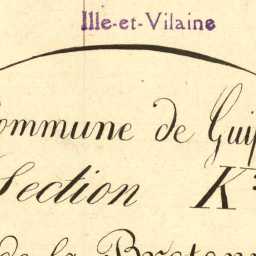 Ille-et-Vilaine
Commune de Guip
Section K
de la Bretonn